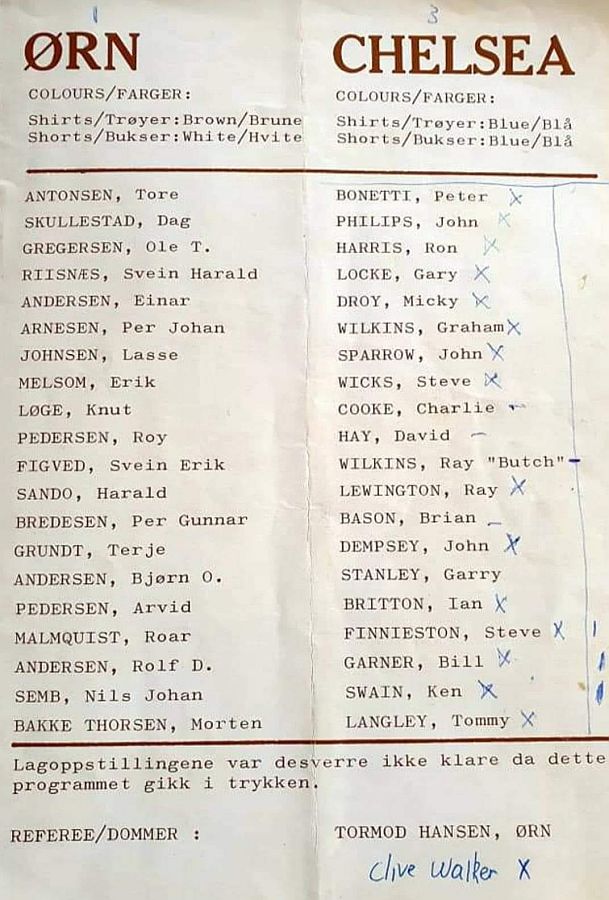 1
ØRN
COLOURS/FARGER:
Shirts/Trøyer:Brown/Brune
Shorts/Bukser:White/Hvite
3
CHELSEA
COLOURS/FARGER:
Shirts/Trøyer:Blue/Blå
Shorts/Bukser:Blue/Blå
ANTONSEN, Tore
SKULLESTAD, Dag
GREGERSEN, Ole T.
RIISNÆS, Svein Harald
ANDERSEN, Einar
ARNESEN, Per Johan
JOHNSEN, Lasse
MELSOM, Erik
LØGE, Knut
PEDERSEN, Roy
FIGVED, Svein Erik
SANDO, Harald
BREDESEN, Per Gunnar
GRUNDT, Terje
ANDERSEN, Bjørn O.
PEDERSEN, Arvid
MALMQUIST, Roar
ANDERSEN, Rolf D.
SEMB, Nils Johan
BAKKE THORSEN, Morten
BONETTI, Peter X
PHILIPS, John X
HARRIS, Ron X
LOCKE, Gary X
DROY, Micky X
WILKINS, Graham X
SPARROW, John X
WICKS, Steve X
COOKE, Charlie -
HAY, David -
WILKINS, Ray "Butch" -
LEWINGTON, Ray X
BASON, Brian -
DEMPSEY, John X
STANLEY, Garry
BRITTON, Ian X
FINNIESTON, Steve X 1
GARNER, Bill X 1
SWAIN, Ken X 1
LANGLEY, Tommy X
Lagoppstillingene var desverre ikke klare da dette
programmet gikk i trykken.
REFEREE/DOMMER : TORMOD HANSEN, ØRN
Clive Walker X